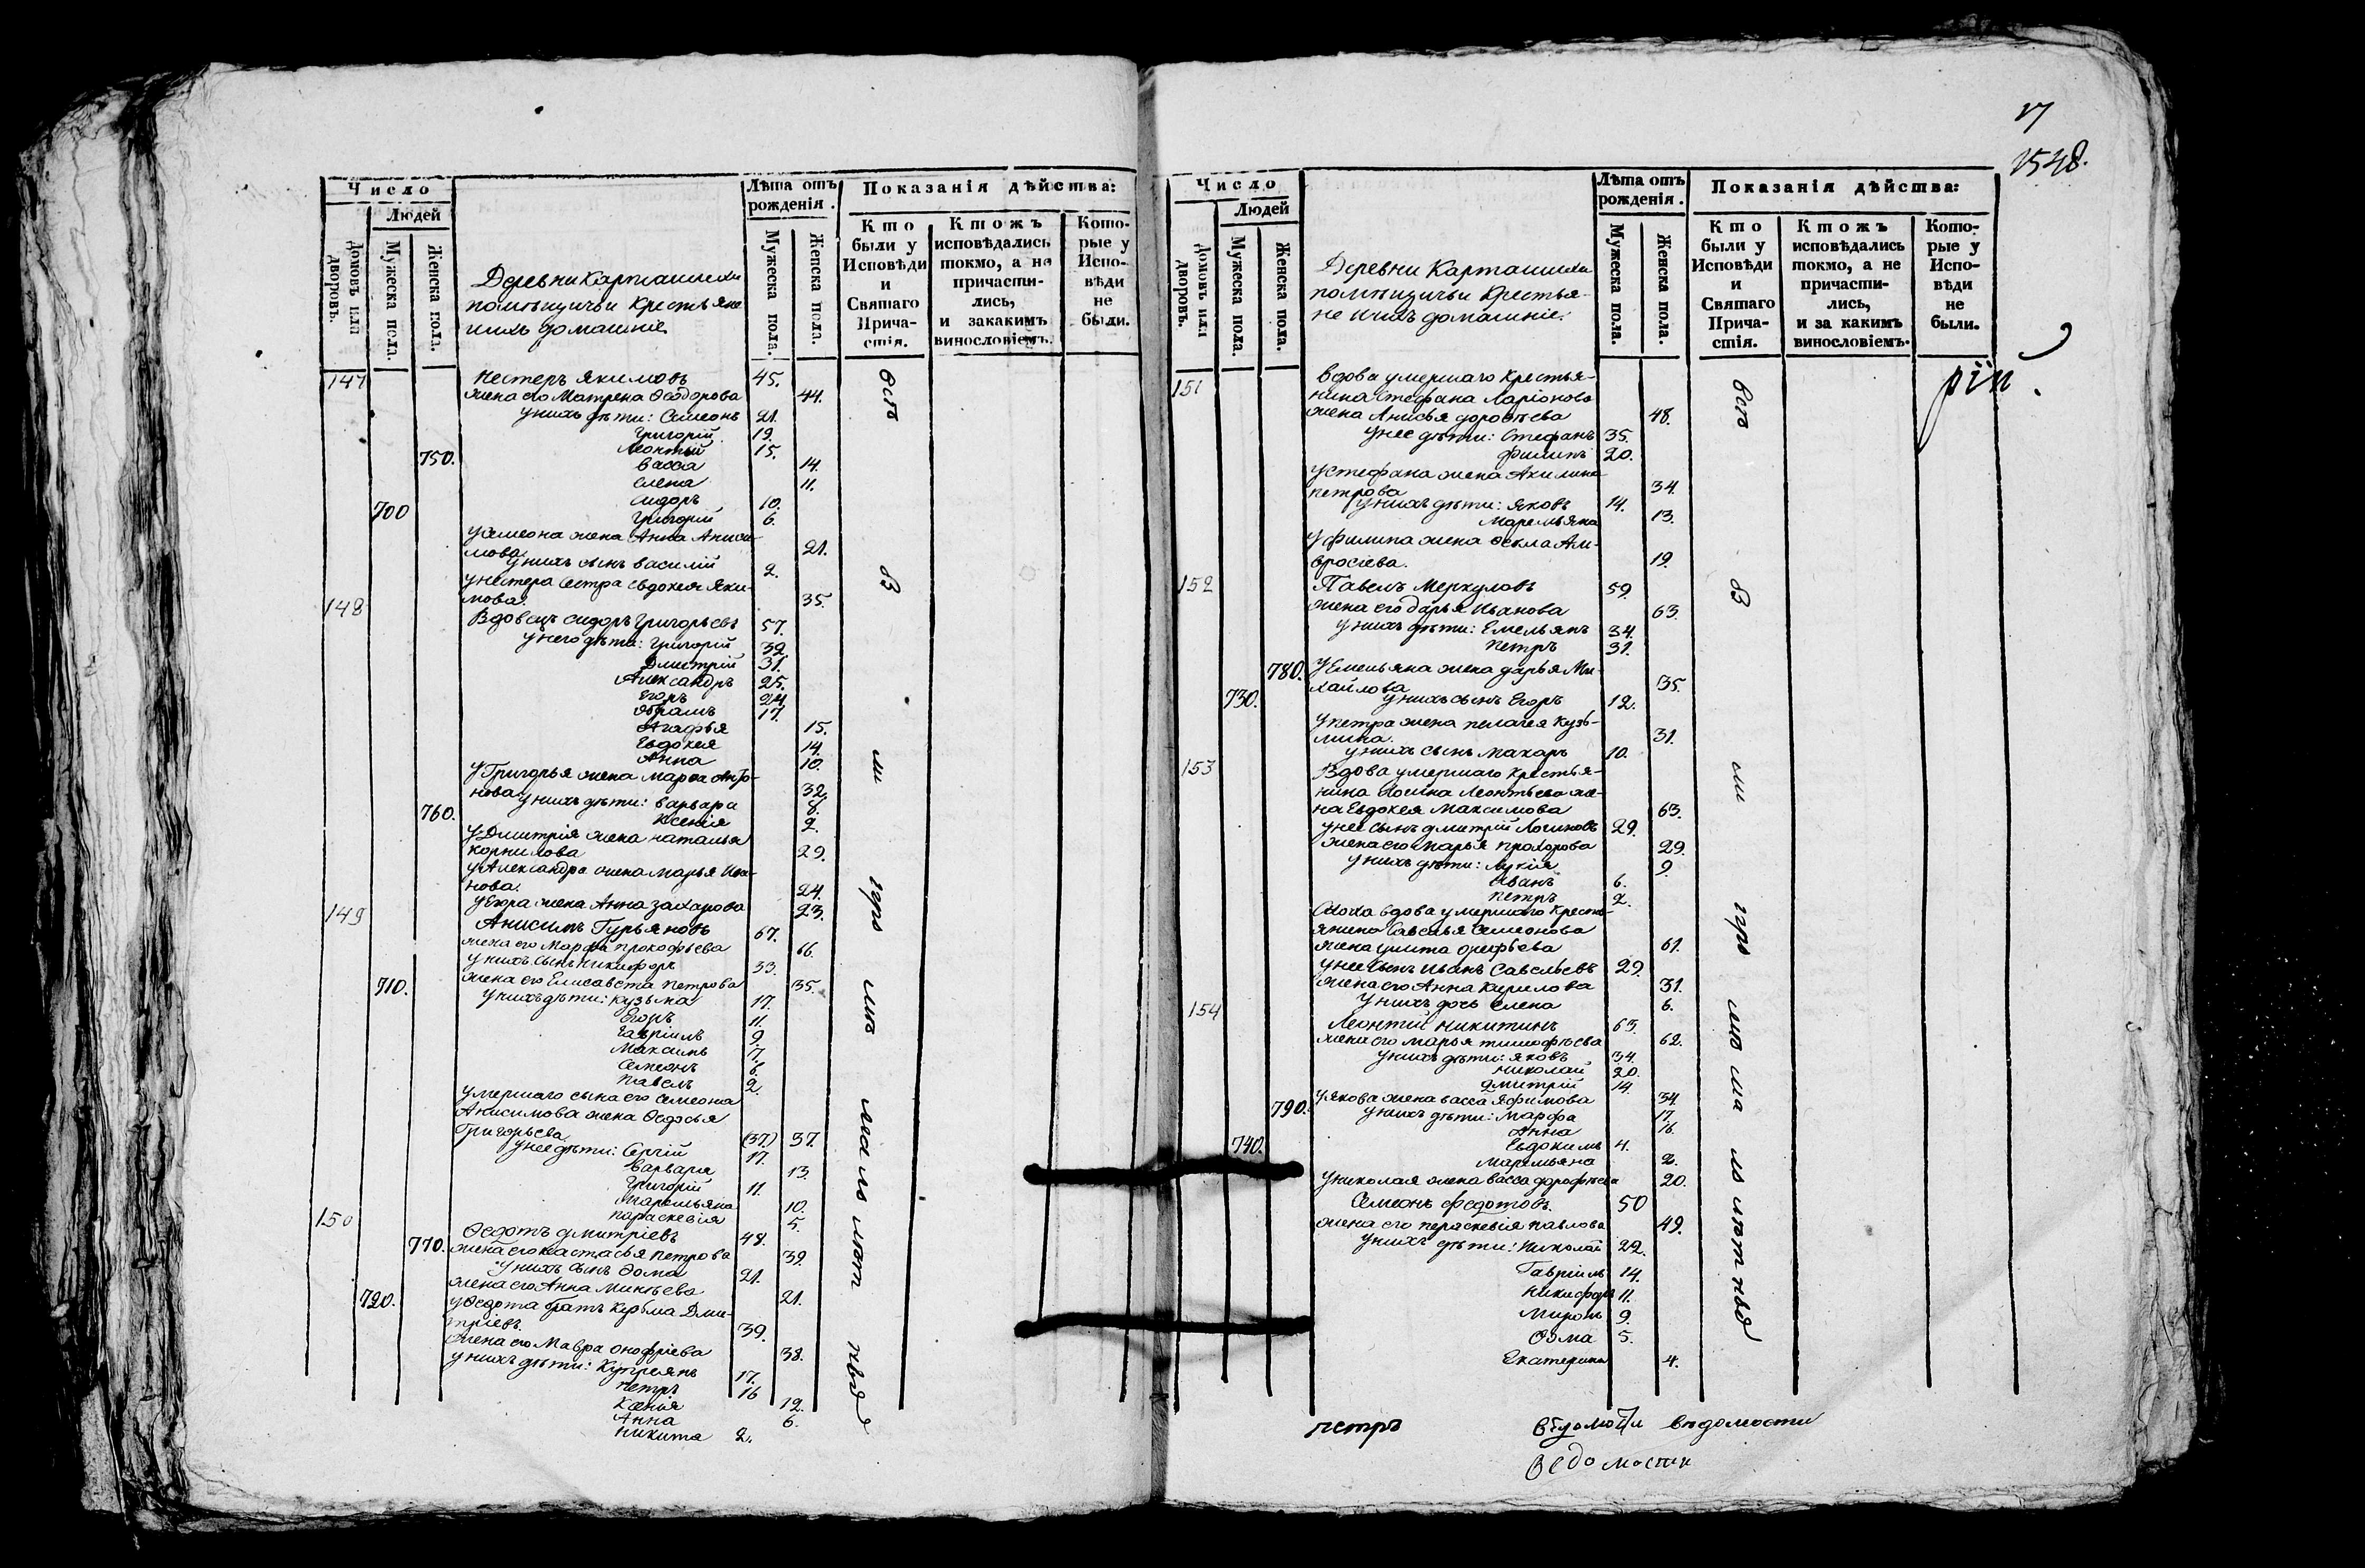 17
1548.
Число
Людей
Домовъ или дворовъ.
Мужеска пола.
Женска пола.
Деревни Карташихи
помѣщичьи крестьяне
и ихъ домашніе
Лѣта отъ рожденія.
Мужеска пола.
Женска пола.
Показанія дѣйства:
Кто были у Исповѣди и Святаго Причастія.
Ктожъ исповѣдались токмо, а не причастились, и закакимъ винословіемъ.
Которые у Исповѣди не были.
147 Нестеръ Якимовъ 45.
жена его Матрена Ѳеодорова 44.
у нихъ дѣти: Симеонъ 21.
Григорій 19.
Леонтій 15.
750. Васса 14.
Елена 11.
Сидоръ 10.
700 Григорій 6.
у Симеона жена Анна Аниси-
мова 21.
у нихъ сынъ Василій 2.
у Нестера сестра Евдокея Яки-
мова. 35.
148 Вдовецъ Сидоръ Григорьевъ 57.
у него дѣти: Григорій 32.
Дмитрій 31.
Александръ 25.
Егоръ 24.
Абрамъ 17.
Агафья 15.
Евдокея 14.
Анна 10.
у Григорья жена Марѳа Анто-
нова 32.
у нихъ дѣти: Варвара 8.
760. Ксенія 2.
у Дмитрія жена Наталья
Корнилова 29.
у Александра жена Марья Ива-
нова. 24.
у Егора жена Анна Захарова 23.
149 Анисимъ Гурьяновъ 67.
жена его Марфа Прокофьева 66.
у нихъ сынъ Никифоръ 33.
жена его Елисавета Петрова 35.
710. у нихъ дѣти: Кузьма 17.
Егоръ 11.
Гавріилъ 9.
Максимъ 7.
Симеонъ 6.
Павелъ 2.
умершаго сына его Симеона
Анисимова жена Ѳедосья
Григорьева (37.) 37.
у нее дѣти: Сергій 17.
Варвара 13.
Григорій 11.
Маремьяна 10.
Параскевія 5.
150 Ѳедотъ Дмитріевъ 48.
770. жена его Настасья Петрова 39.
у нихъ сынъ Ѳома 21.
жена его Анна Минѣева 21.
720. у Ѳедота братъ Кузьма Дми-
тріевъ. 39.
жена его Мавра Онофріева 38.
у нихъ дѣти: Купреянъ 17.
Петръ 16
Ксенія 12.
Анна 6.
Никита 2.
Число
Людей
Домовъ или дворовъ.
Мужеска пола.
Женска пола.
Деревни Карташихи
помѣщичьи крестья-
не и ихъ домашніе.
Лѣта отъ рожденія.
Мужеска пола.
Женска пола.
Показанія дѣйства:
Кто были у Исповѣди и Святаго Причастія.
Ктожъ исповѣдались токмо, а не причастились, и за какимъ винословіемъ.
Которые у Исповѣди не были.
151 Вдова умершаго крестья-
нина Стефана Ларіонова
жена Анисья Дорофѣева 48.
у нее дѣти: Стефанъ 35.
Филипъ 20.
у Стефана жена Акилина
Петрова 34.
у нихъ дѣти: Яковъ 14.
Маремьяна 13.
у Филипа жена Ѳекла Ам-
вросіева. 19.
152 Павелъ Меркуловъ 59.
жена его Дарья Иванова 63.
у нихъ дѣти: Емельянъ 34.
Петръ 31.
780. у Емельяна жена Дарья Ми-
хайлова 35.
730. у нихъ сынъ Егоръ 12.
у Петра жена Пелагея Кузь-
мина. 31.
у нихъ сынъ Макаръ 10.
153 Вдова умершаго крестья-
нина Логина Леонтьева же-
на Евдокея Максимова 63.
у нее сынъ Дмитрій Логиновъ 29.
жена его Марья Прохорова 29.
у нихъ дѣти: Лукія 9.
Иванъ 6.
Петръ 2.
Сноха вдова умершаго кресть-
янина Савелья Семенова
жена Улита Онофрьева 61.
у нее сынъ Иванъ Савельевъ 29.
жена его Анна Кирилова 31.
у нихъ дочь Елена 6.
154 Леонтій Никитинъ 63.
жена его Марья Тимофѣева 62.
у нихъ дѣти: Яковъ 34.
Николай 20.
Дмитрій 14.
у Якова жена Васса Яфимова 34.
790. у нихъ дѣти: Марфа 17.
Анна 16.
740. Евдокимъ 4.
Маремьяна 2.
у Николая жена Васса Дорофѣева 20.
Симеонъ Федотовъ. 50
жена его Перасковія Павлова 49.
у нихъ дѣти: Николай 22.
Гавріилъ 14.
Никифоръ 11.
Миронъ 9.
Ѳома 5.
Екатерина 4.
Петръ
вѣдомости
ведомости